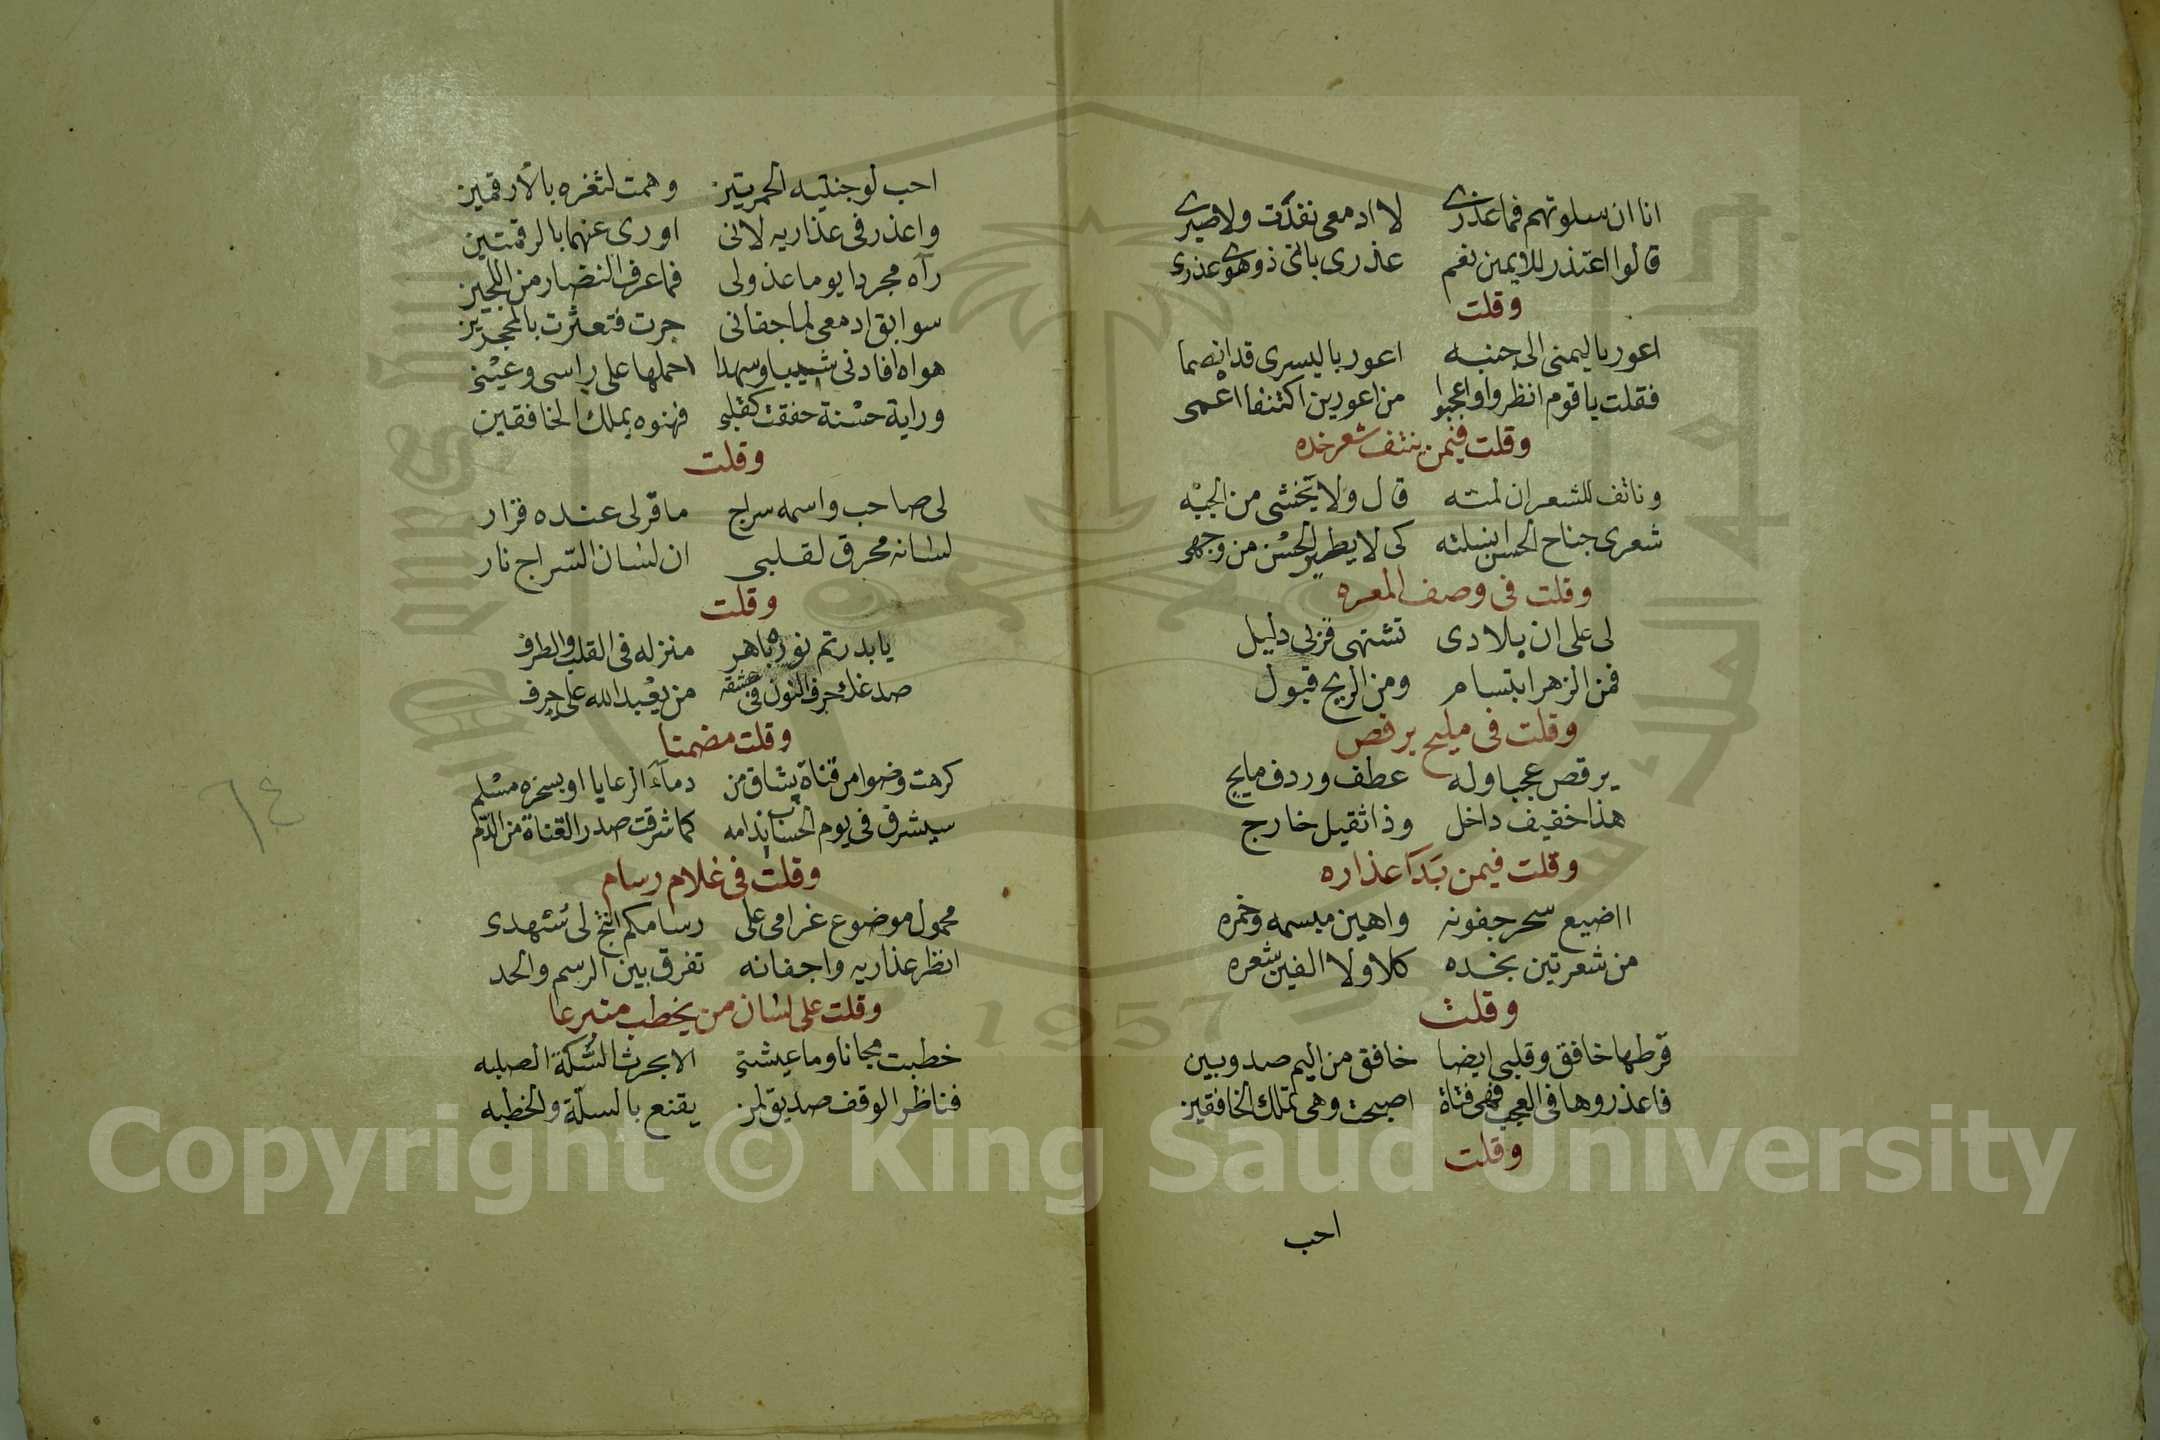 انا ان سلوتهم فما عذرى لا ادمعى نفدت ولا صبرى
قالوا اعتذر للايمين نعم عذرى بانى ذو هوى عذرى
وقلت
اعور باليمنى الى جنبه اعور باليسرى قد انضما
فقلت يا قوم انظروا واعجبوا من اعورين اكتنفا اعمى
وقلت فيمن ينتف شعر خده
وناتف للشعر ان لمته قال ولا يخشى من الجبه
شعرى جناح الحسن انسلته كى لا يطير الحسن من وجهى
وقلت فى وصف المعره
لى على ان بلادى تشتهى قربى دليل
فمن الزهر ابتسام ومن الريح قبول
وقلت فى مليح يرقص
يرقص عجبا وله عطف وردف مايج
هذا خفيف داخل وذا ثقيل خارج
وقلت فيمن بدا عذاره
ااضيع سحر جفونه واهين مبسمه وخمره
من شعرتين بخده كلا ولا الفين شعره
وقلت
قرطها خافق وقلبى ايضا خافق من اليم صد وبين
فاعذروها فى العجب فهى فتاة اصبحت وهى تملك الخافقين
وقلت
احب
احب لوجنتيه الحمرتين وهمت لثغره بالارقمين
واعذر فى عذاريه لانى اورى عنهما بالرقمتين
رآه مجردا يوما عذولى فما عرف النضار من اللجين
سوابق ادمعى لما جفانى جرت فتعثرت بالمحجرين
هواه افادنى شيبا وسهدا احملها على راسى وعينى
وراية حسنة خفقت كقلبى فهنوه بملك الخافقين
وقلت
لى صاحب واسمه سراج ما قر لى عنده قرار
لسانه محرق لقلبى ان لسان السراج نار
وقلت
يا بدر تم نوره باهر منزله فى القلب والطرف
صدغك حرف النون فى عشقه من يعبد الله على حرف
وقلت مضمنا
كرهت وضوا من قناة يساق من دماء الرعايا او بسخره مسلم
سيشرق فى يوم الحساب ندامه كما شرقت صدر القناة من الدم
وقلت فى غلام رسام
محمول موضوع غرامى على رسامكم انتج لى سهدى
انظر عذاريه واجفانه تفرق بين الرسم والحد
وقلت على لسان من يخطب متبرعا
خطبت مجانا وما عيشتى الا بحرث السكة الصلبه
فناظر الوقف صديق لمن يقنع بالسلة والخطبه
٦٤
1957
Copyright © King Saud University